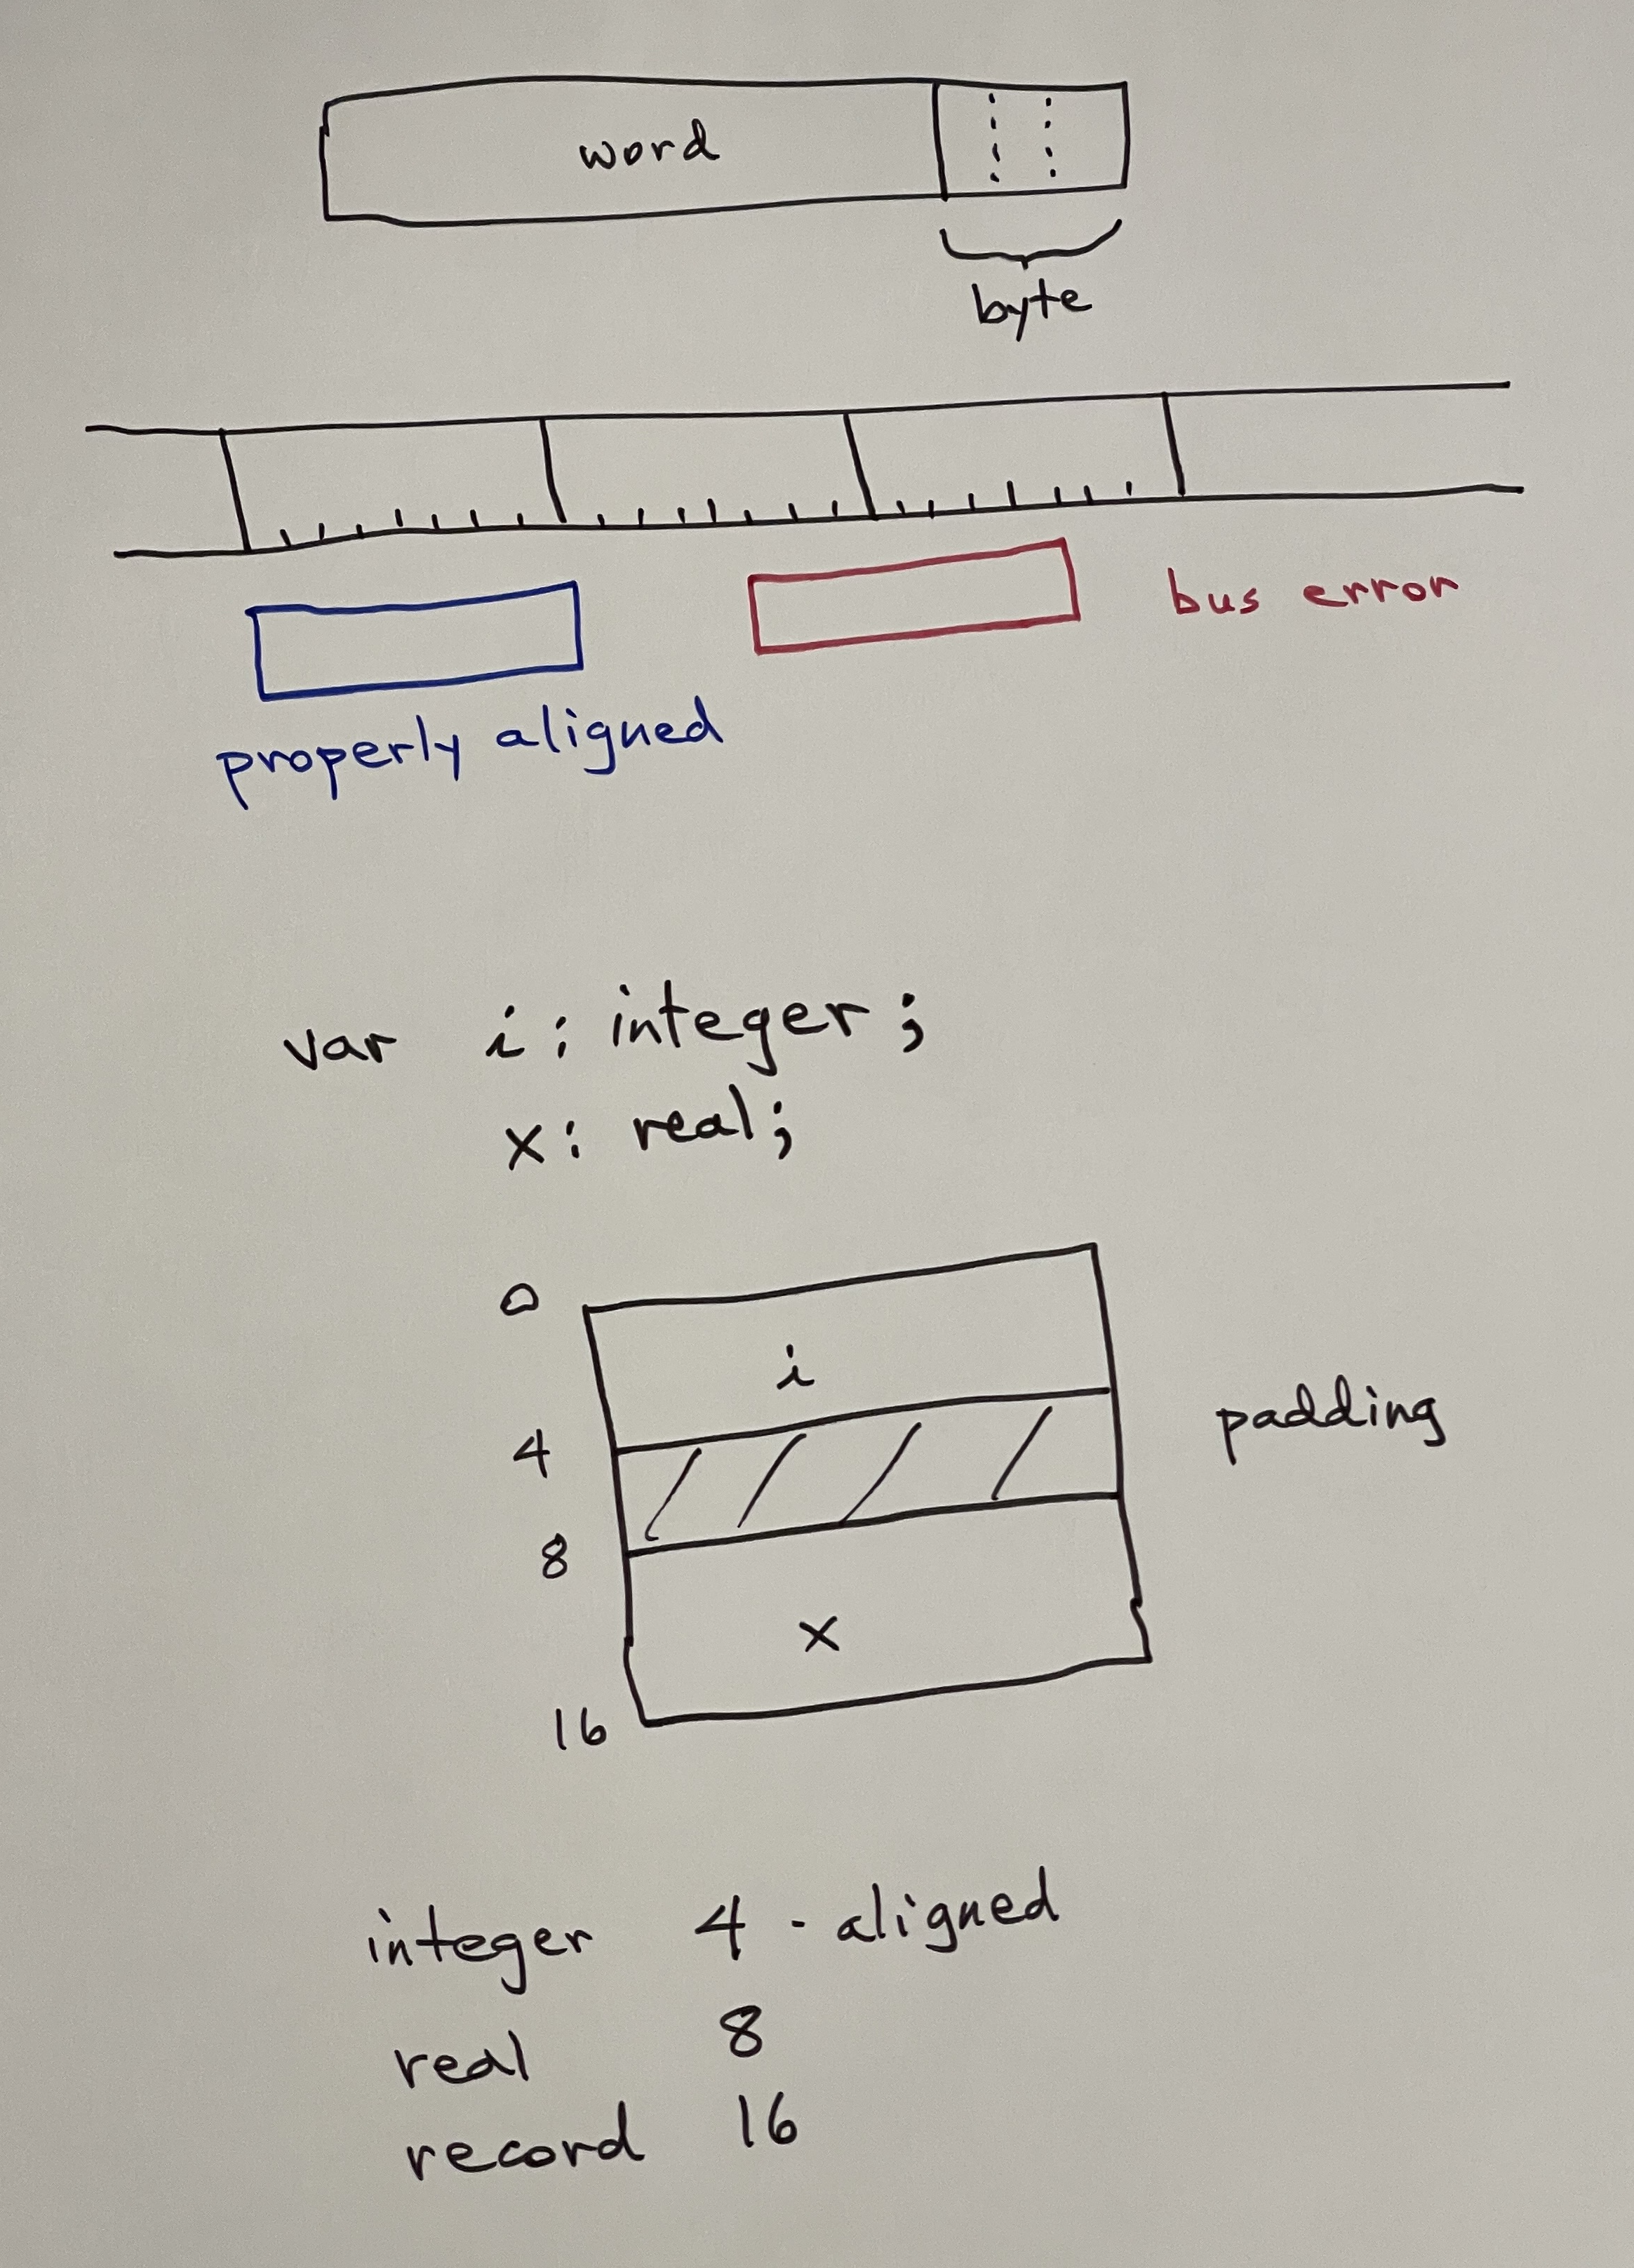 word
byte
bus error
properly aligned
var i: integer;
x: real;
0
i
4
padding
8
x
16
integer 4-aligned
real 8
record 16